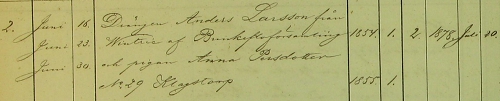 2. Juni 16. Drängen Anders Larsson från
Juni 23. Wintrie af Bunkefloförsamling 1854. 1. 2. 1878, Juli 20.
Juni 30. och pigan Anna Persdotter
No 29 Klagstorp 1855 1.